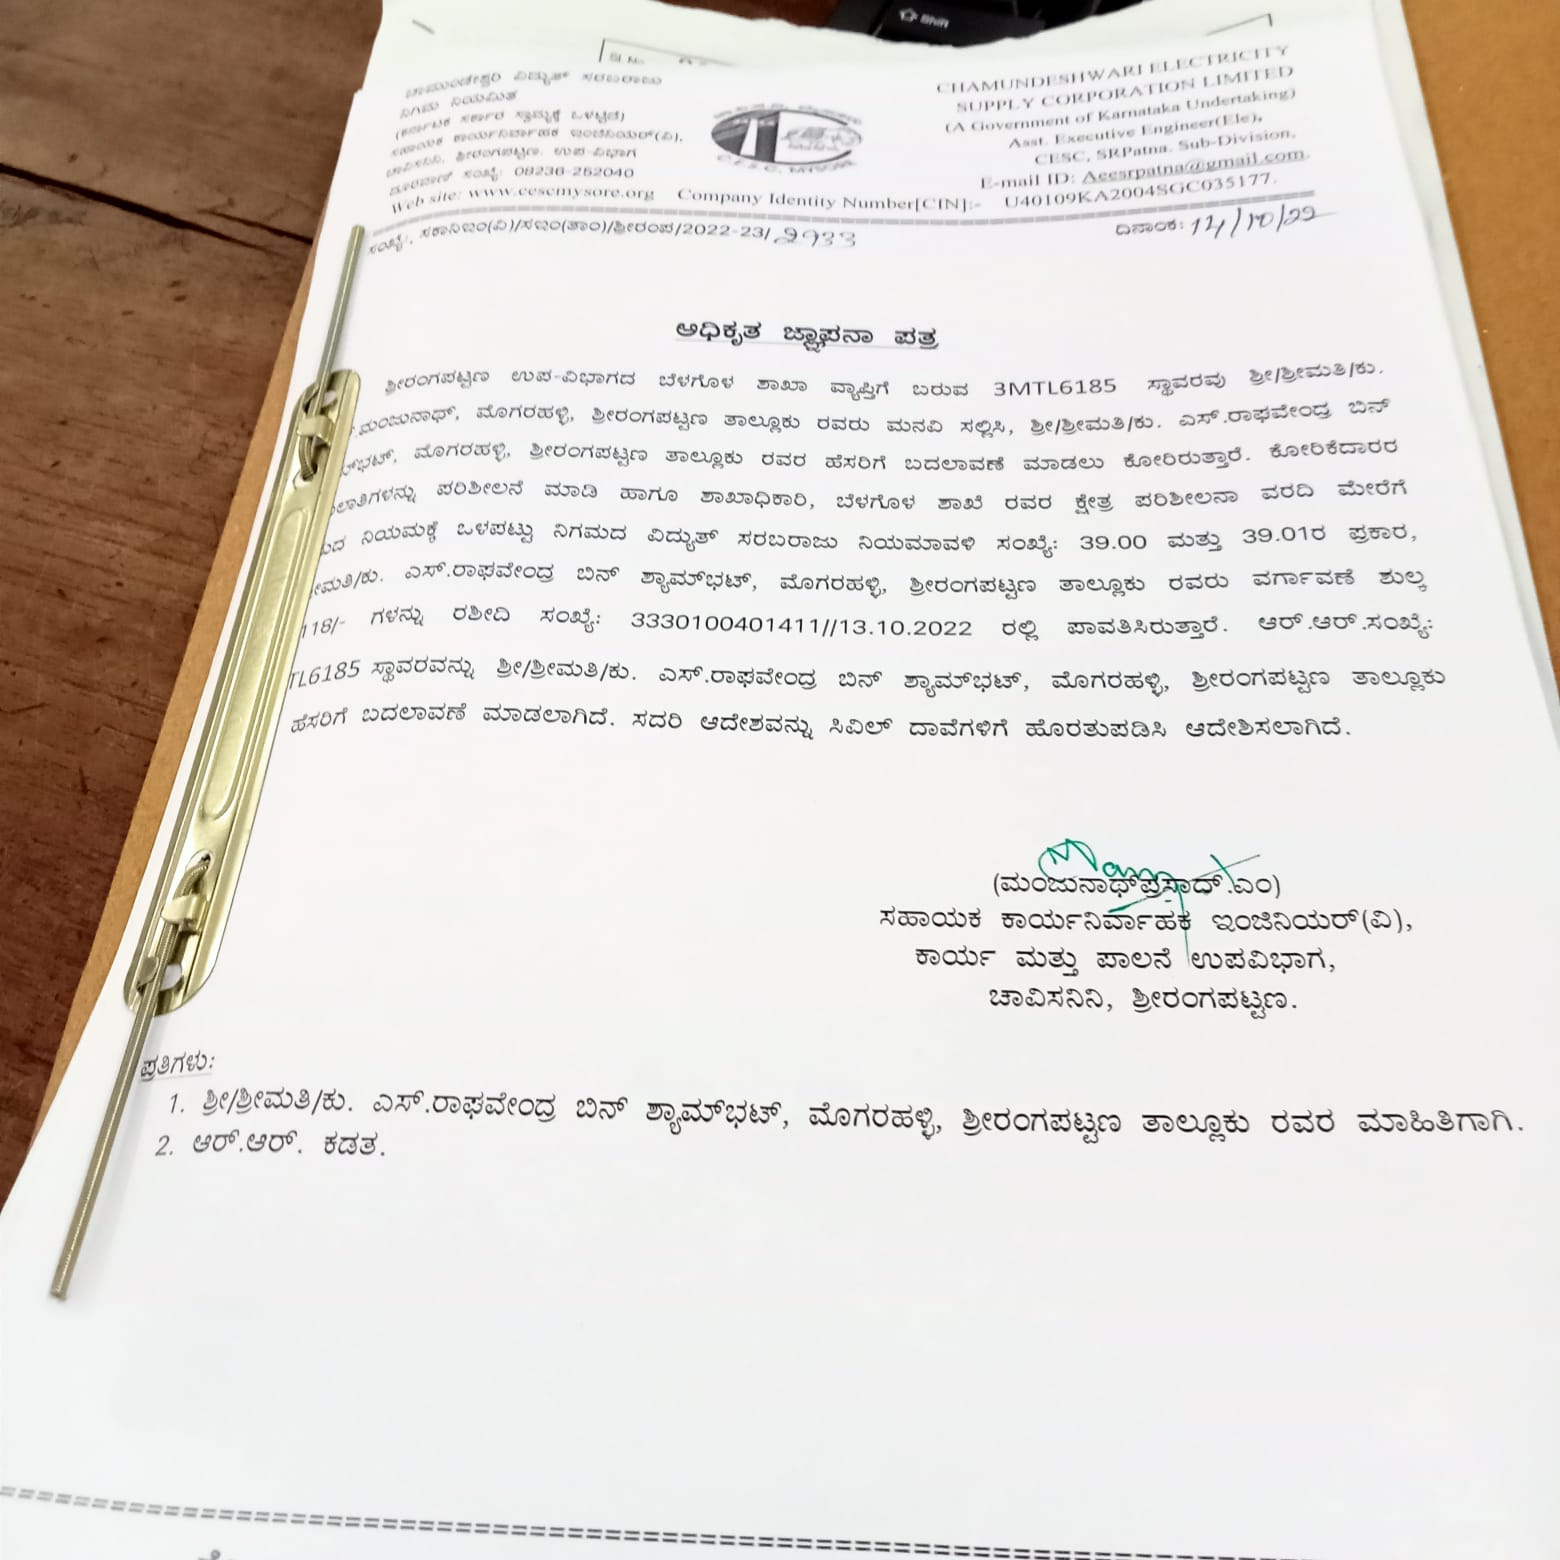 ಚಾಮುಂಡೇಶ್ವರಿ ವಿದ್ಯುತ್ ಸರಬರಾಜು
ನಿಗಮ ನಿಯಮಿತ
(ಕರ್ನಾಟಕ ಸರ್ಕಾರ ಸ್ವಾಮ್ಯಕ್ಕೆ ಒಳಪಟ್ಟಿದೆ)
ಸಹಾಯಕ ಕಾರ್ಯನಿರ್ವಾಹಕ ಇಂಜಿನಿಯರ್(ವಿ),
ಚಾವಿಸನಿನಿ, ಶ್ರೀರಂಗಪಟ್ಟಣ. ಉಪ-ವಿಭಾಗ
ದೂರವಾಣಿ ಸಂಖ್ಯೆ: 08236-252040
CHAMUNDESHWARI ELECTRICITY
SUPPLY CORPORATION LIMITED
(A Government of Karnataka Undertaking)
Asst. Executive Engineer(Ele),
CESC, SRPatna. Sub-Division,
E-mail ID: Aeesrpatna@gmail.com.
Web site: www.cescmysore.org Company Identity Number[CIN]:- U40109KA2004SGC035177.
ಸಂಖ್ಯೆ:, ಸಕಾನಿಇಂ(ವಿ)/ಸಇಂ(ತಾಂ)/ಶ್ರೀರಂಪ/2022-23/2933 ದಿನಾಂಕ: 14/10/22
ಅಧಿಕೃತ ಜ್ಞಾಪನಾ ಪತ್ರ
ಶ್ರೀರಂಗಪಟ್ಟಣ ಉಪ-ವಿಭಾಗದ ಬೆಳಗೊಳ ಶಾಖಾ ವ್ಯಾಪ್ತಿಗೆ ಬರುವ 3MTL6185 ಸ್ಥಾವರವು ಶ್ರೀ/ಶ್ರೀಮತಿ/ಕು.
.ಮಂಜುನಾಥ್, ಮೊಗರಹಳ್ಳಿ, ಶ್ರೀರಂಗಪಟ್ಟಣ ತಾಲ್ಲೂಕು ರವರು ಮನವಿ ಸಲ್ಲಿಸಿ, ಶ್ರೀ/ಶ್ರೀಮತಿ/ಕು. ಎಸ್.ರಾಘವೇಂದ್ರ ಬಿನ್
ಮ್‌ಭಟ್, ಮೊಗರಹಳ್ಳಿ, ಶ್ರೀರಂಗಪಟ್ಟಣ ತಾಲ್ಲೂಕು ರವರ ಹೆಸರಿಗೆ ಬದಲಾವಣೆ ಮಾಡಲು ಕೋರಿರುತ್ತಾರೆ. ಕೋರಿಕೆದಾರರ
ಲಾತಿಗಳನ್ನು ಪರಿಶೀಲನೆ ಮಾಡಿ ಹಾಗೂ ಶಾಖಾಧಿಕಾರಿ, ಬೆಳಗೊಳ ಶಾಖೆ ರವರ ಕ್ಷೇತ್ರ ಪರಿಶೀಲನಾ ವರದಿ ಮೇರೆಗೆ
ಮದ ನಿಯಮಕ್ಕೆ ಒಳಪಟ್ಟು ನಿಗಮದ ವಿದ್ಯುತ್ ಸರಬರಾಜು ನಿಯಮಾವಳಿ ಸಂಖ್ಯೆ: 39.00 ಮತ್ತು 39.01ರ ಪ್ರಕಾರ,
ೀಮತಿ/ಕು. ಎಸ್.ರಾಘವೇಂದ್ರ ಬಿನ್ ಶ್ಯಾಮ್‌ಭಟ್, ಮೊಗರಹಳ್ಳಿ, ಶ್ರೀರಂಗಪಟ್ಟಣ ತಾಲ್ಲೂಕು ರವರು ವರ್ಗಾವಣೆ ಶುಲ್ಕ
118/- ಗಳನ್ನು ರಶೀದಿ ಸಂಖ್ಯೆ: 3330100401411//13.10.2022 ರಲ್ಲಿ ಪಾವತಿಸಿರುತ್ತಾರೆ. ಆರ್.ಆರ್.ಸಂಖ್ಯೆ:
TL6185 ಸ್ಥಾವರವನ್ನು ಶ್ರೀ/ಶ್ರೀಮತಿ/ಕು. ಎಸ್.ರಾಘವೇಂದ್ರ ಬಿನ್ ಶ್ಯಾಮ್‌ಭಟ್, ಮೊಗರಹಳ್ಳಿ, ಶ್ರೀರಂಗಪಟ್ಟಣ ತಾಲ್ಲೂಕು
ಹೆಸರಿಗೆ ಬದಲಾವಣೆ ಮಾಡಲಾಗಿದೆ. ಸದರಿ ಆದೇಶವನ್ನು ಸಿವಿಲ್ ದಾವೆಗಳಿಗೆ ಹೊರತುಪಡಿಸಿ ಆದೇಶಿಸಲಾಗಿದೆ.
(ಮಂಜುನಾಥ್‌ಪ್ರಸಾದ್.ಎಂ)
ಸಹಾಯಕ ಕಾರ್ಯನಿರ್ವಾಹಕ ಇಂಜಿನಿಯರ್(ವಿ),
ಕಾರ್ಯ ಮತ್ತು ಪಾಲನೆ ಉಪವಿಭಾಗ,
ಚಾವಿಸನಿನಿ, ಶ್ರೀರಂಗಪಟ್ಟಣ.
ಪ್ರತಿಗಳು:
1. ಶ್ರೀ/ಶ್ರೀಮತಿ/ಕು. ಎಸ್.ರಾಘವೇಂದ್ರ ಬಿನ್ ಶ್ಯಾಮ್‌ಭಟ್, ಮೊಗರಹಳ್ಳಿ, ಶ್ರೀರಂಗಪಟ್ಟಣ ತಾಲ್ಲೂಕು ರವರ ಮಾಹಿತಿಗಾಗಿ.
2. ಆರ್.ಆರ್. ಕಡತ.